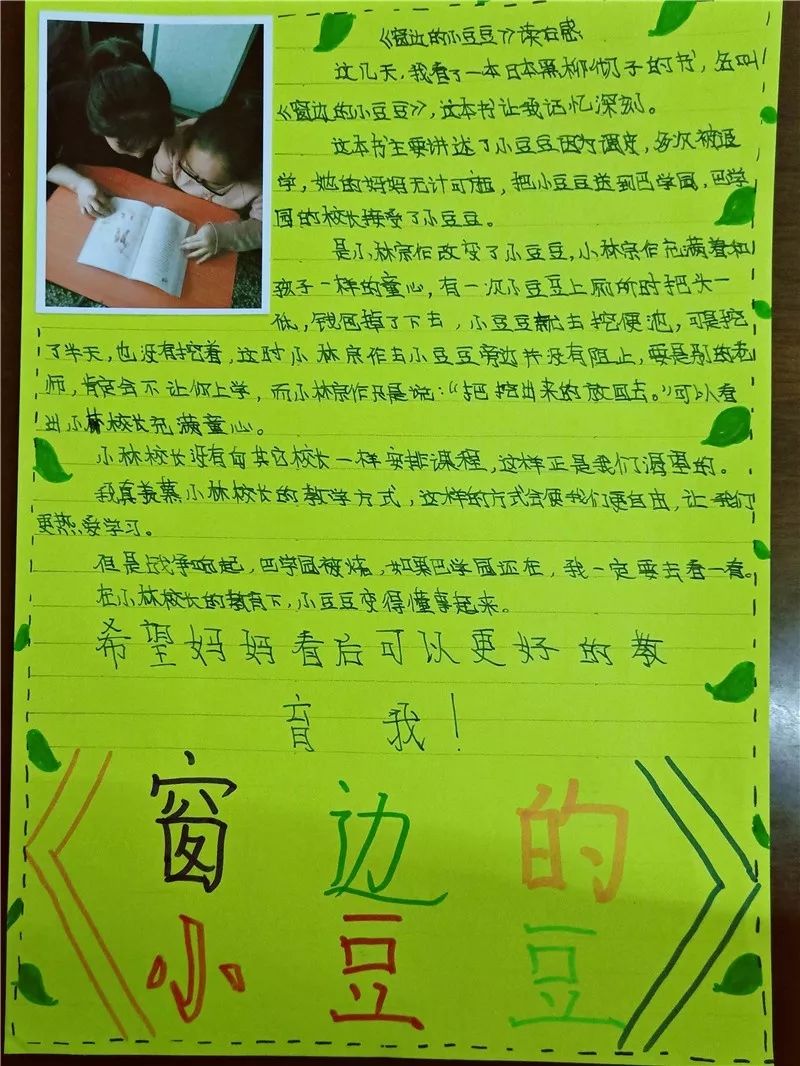 《窗边的小豆豆》读后感
这几天，我看了一本日本黑柳彻子的书，名叫
《窗边的小豆豆》，这本书让我记忆深刻。
这本书主要讲述了小豆豆因为调皮，多次被退
学，她的妈妈无计可施，把小豆豆送到巴学园，巴学
园的校长接受了小豆豆。
是小林宗作改变了小豆豆，小林宗作充满着和
孩子一样的童心，有一次小豆豆上厕所时把头一
低，钱包掉了下去，小豆豆就去挖便池，可是挖
了半天，也没有挖着，这时小林宗作去小豆豆旁边并没有阻止，要是别的老
师，肯定会不让你上学，而小林宗作只是说：“把挖出来的放回去。”可以看
出小林校长充满童心。
小林校长没有向其它校长一样安排课程，这样正是我们渴望的。
我真羡慕小林校长的教学方式，这样的方式会使我们更自由，让我们
更热爱学习。
但是战争响起，巴学园被烧，如果巴学园还在，我一定要去看一看。
在小林校长的教育下，小豆豆变得懂事起来。
希望妈妈看后可以更好的教
育我！
《窗边的
小豆豆》